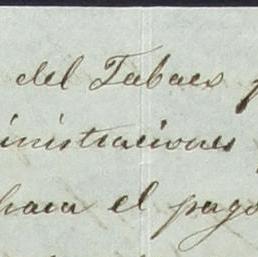 del Tabaco p
inistraciones
haca el pago